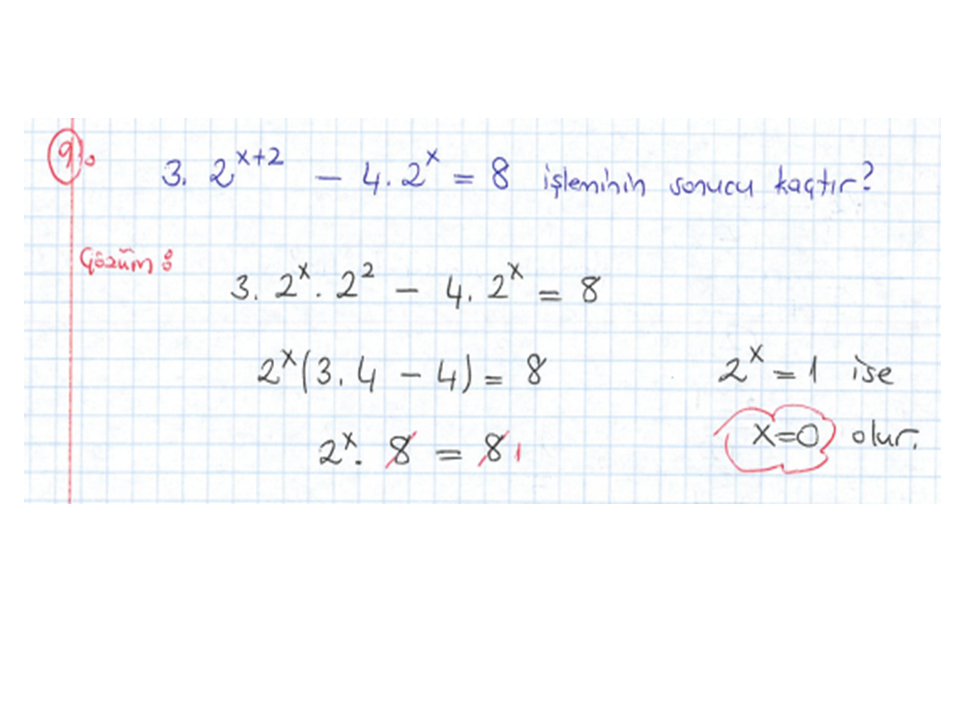 9. 3. 2^(x+2) - 4. 2^x = 8 işleminin sonucu kaçtır?
Çözüm :
3. 2^x. 2^2 - 4. 2^x = 8
2^x (3. 4 - 4) = 8
2^x. 8 = 8 1
2^x = 1 ise
x=0 olur.